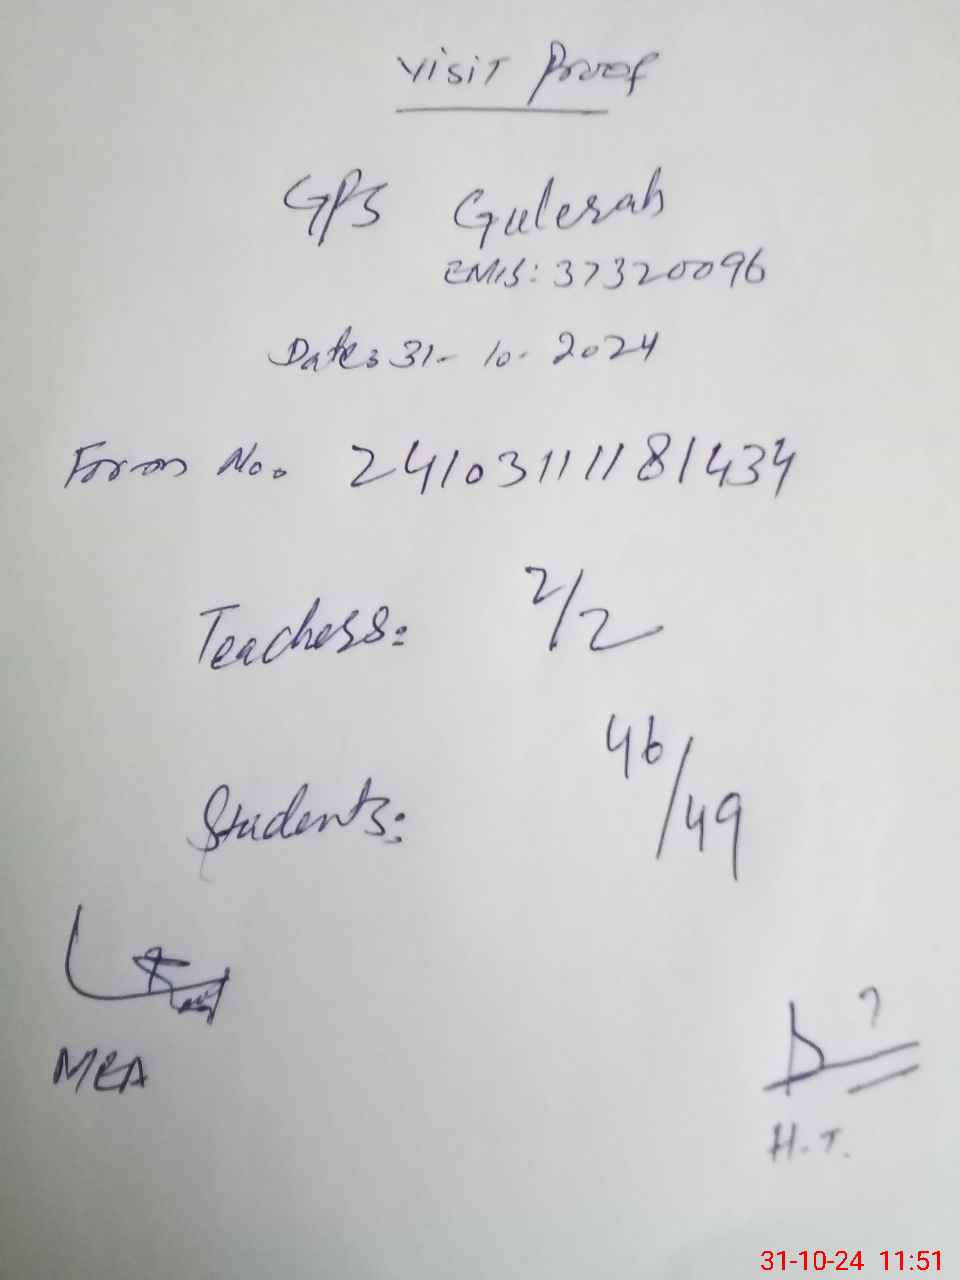 Visit Proof
GPS Gulerah
EMIS: 37320096
Date: 31-10-2024
Form No. 24103111181434
Teachers: 2/2
Students: 46/49
MEA
H.T.
31-10-24 11:51